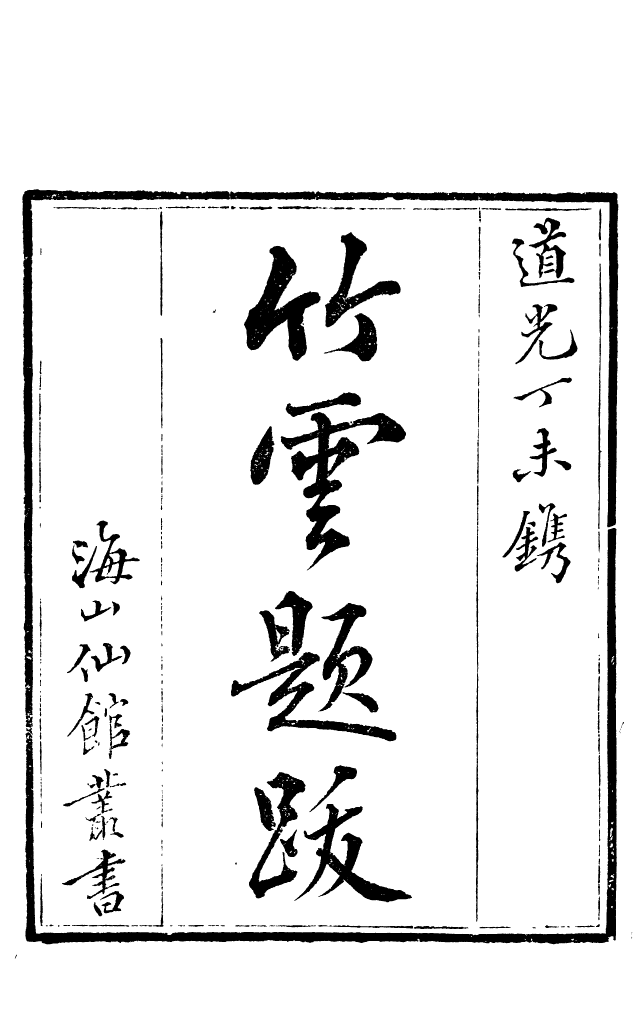 道光丁未鐫
竹雲題跋
海山仙館叢書